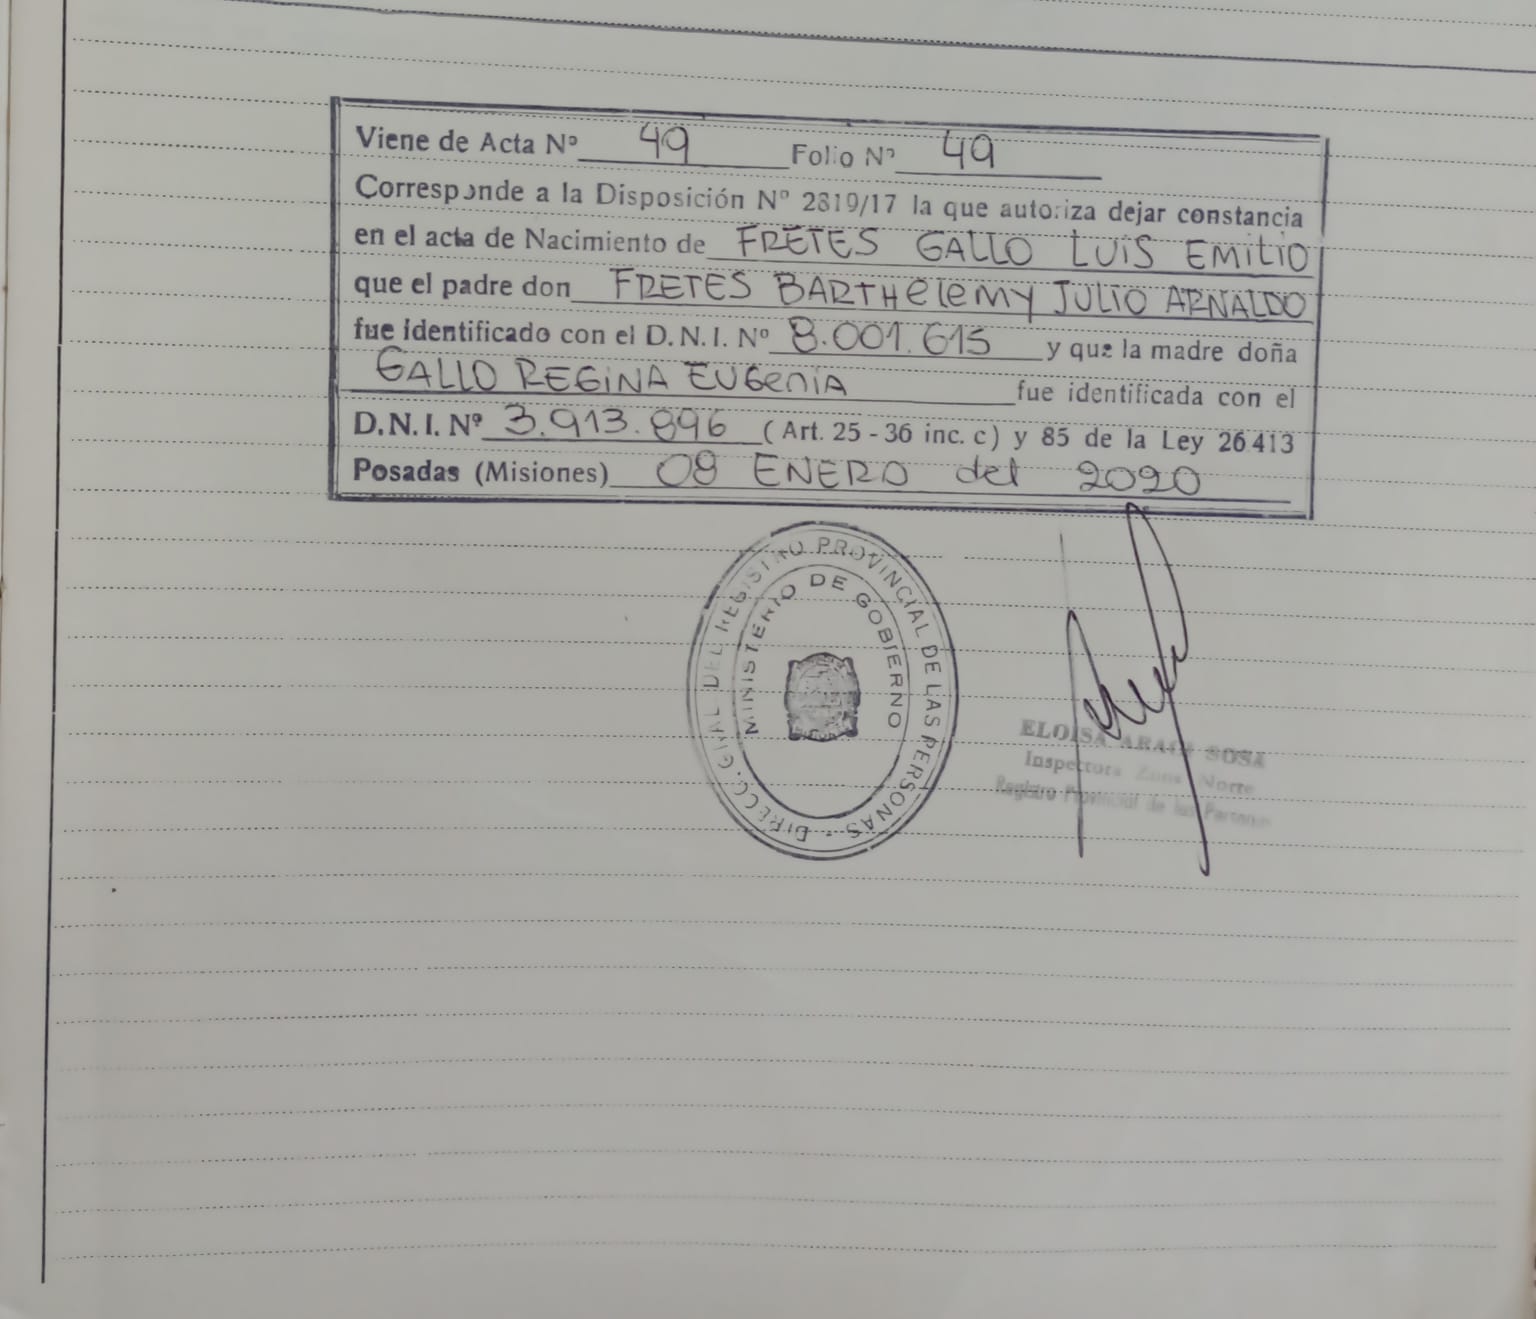 Viene de Acta Nº 49 Folio Nº 49
Corresponde a la Disposición Nº 2819/17 la que autoriza dejar constancia
en el acta de Nacimiento de FRETES GALLO LUIS EMILIO
que el padre don FRETES BARTHelemy JULIO ARNALDO
fue identificado con el D.N.I. Nº 8.001.615 y que la madre doña
GALLO REGINA EUGenIA fue identificada con el
D.N.I. Nº 3.913.896 (Art. 25 - 36 inc. c) y 85 de la Ley 26.413
Posadas (Misiones) 08 ENERO del 2020
DIRECC. GRAL DEL REGISTRO PROVINCIAL DE LAS PERSONAS -
MINISTERIO DE GOBIERNO
ELOISA SOSA
Inspectora Zona Norte
Registro Provincial de las Personas